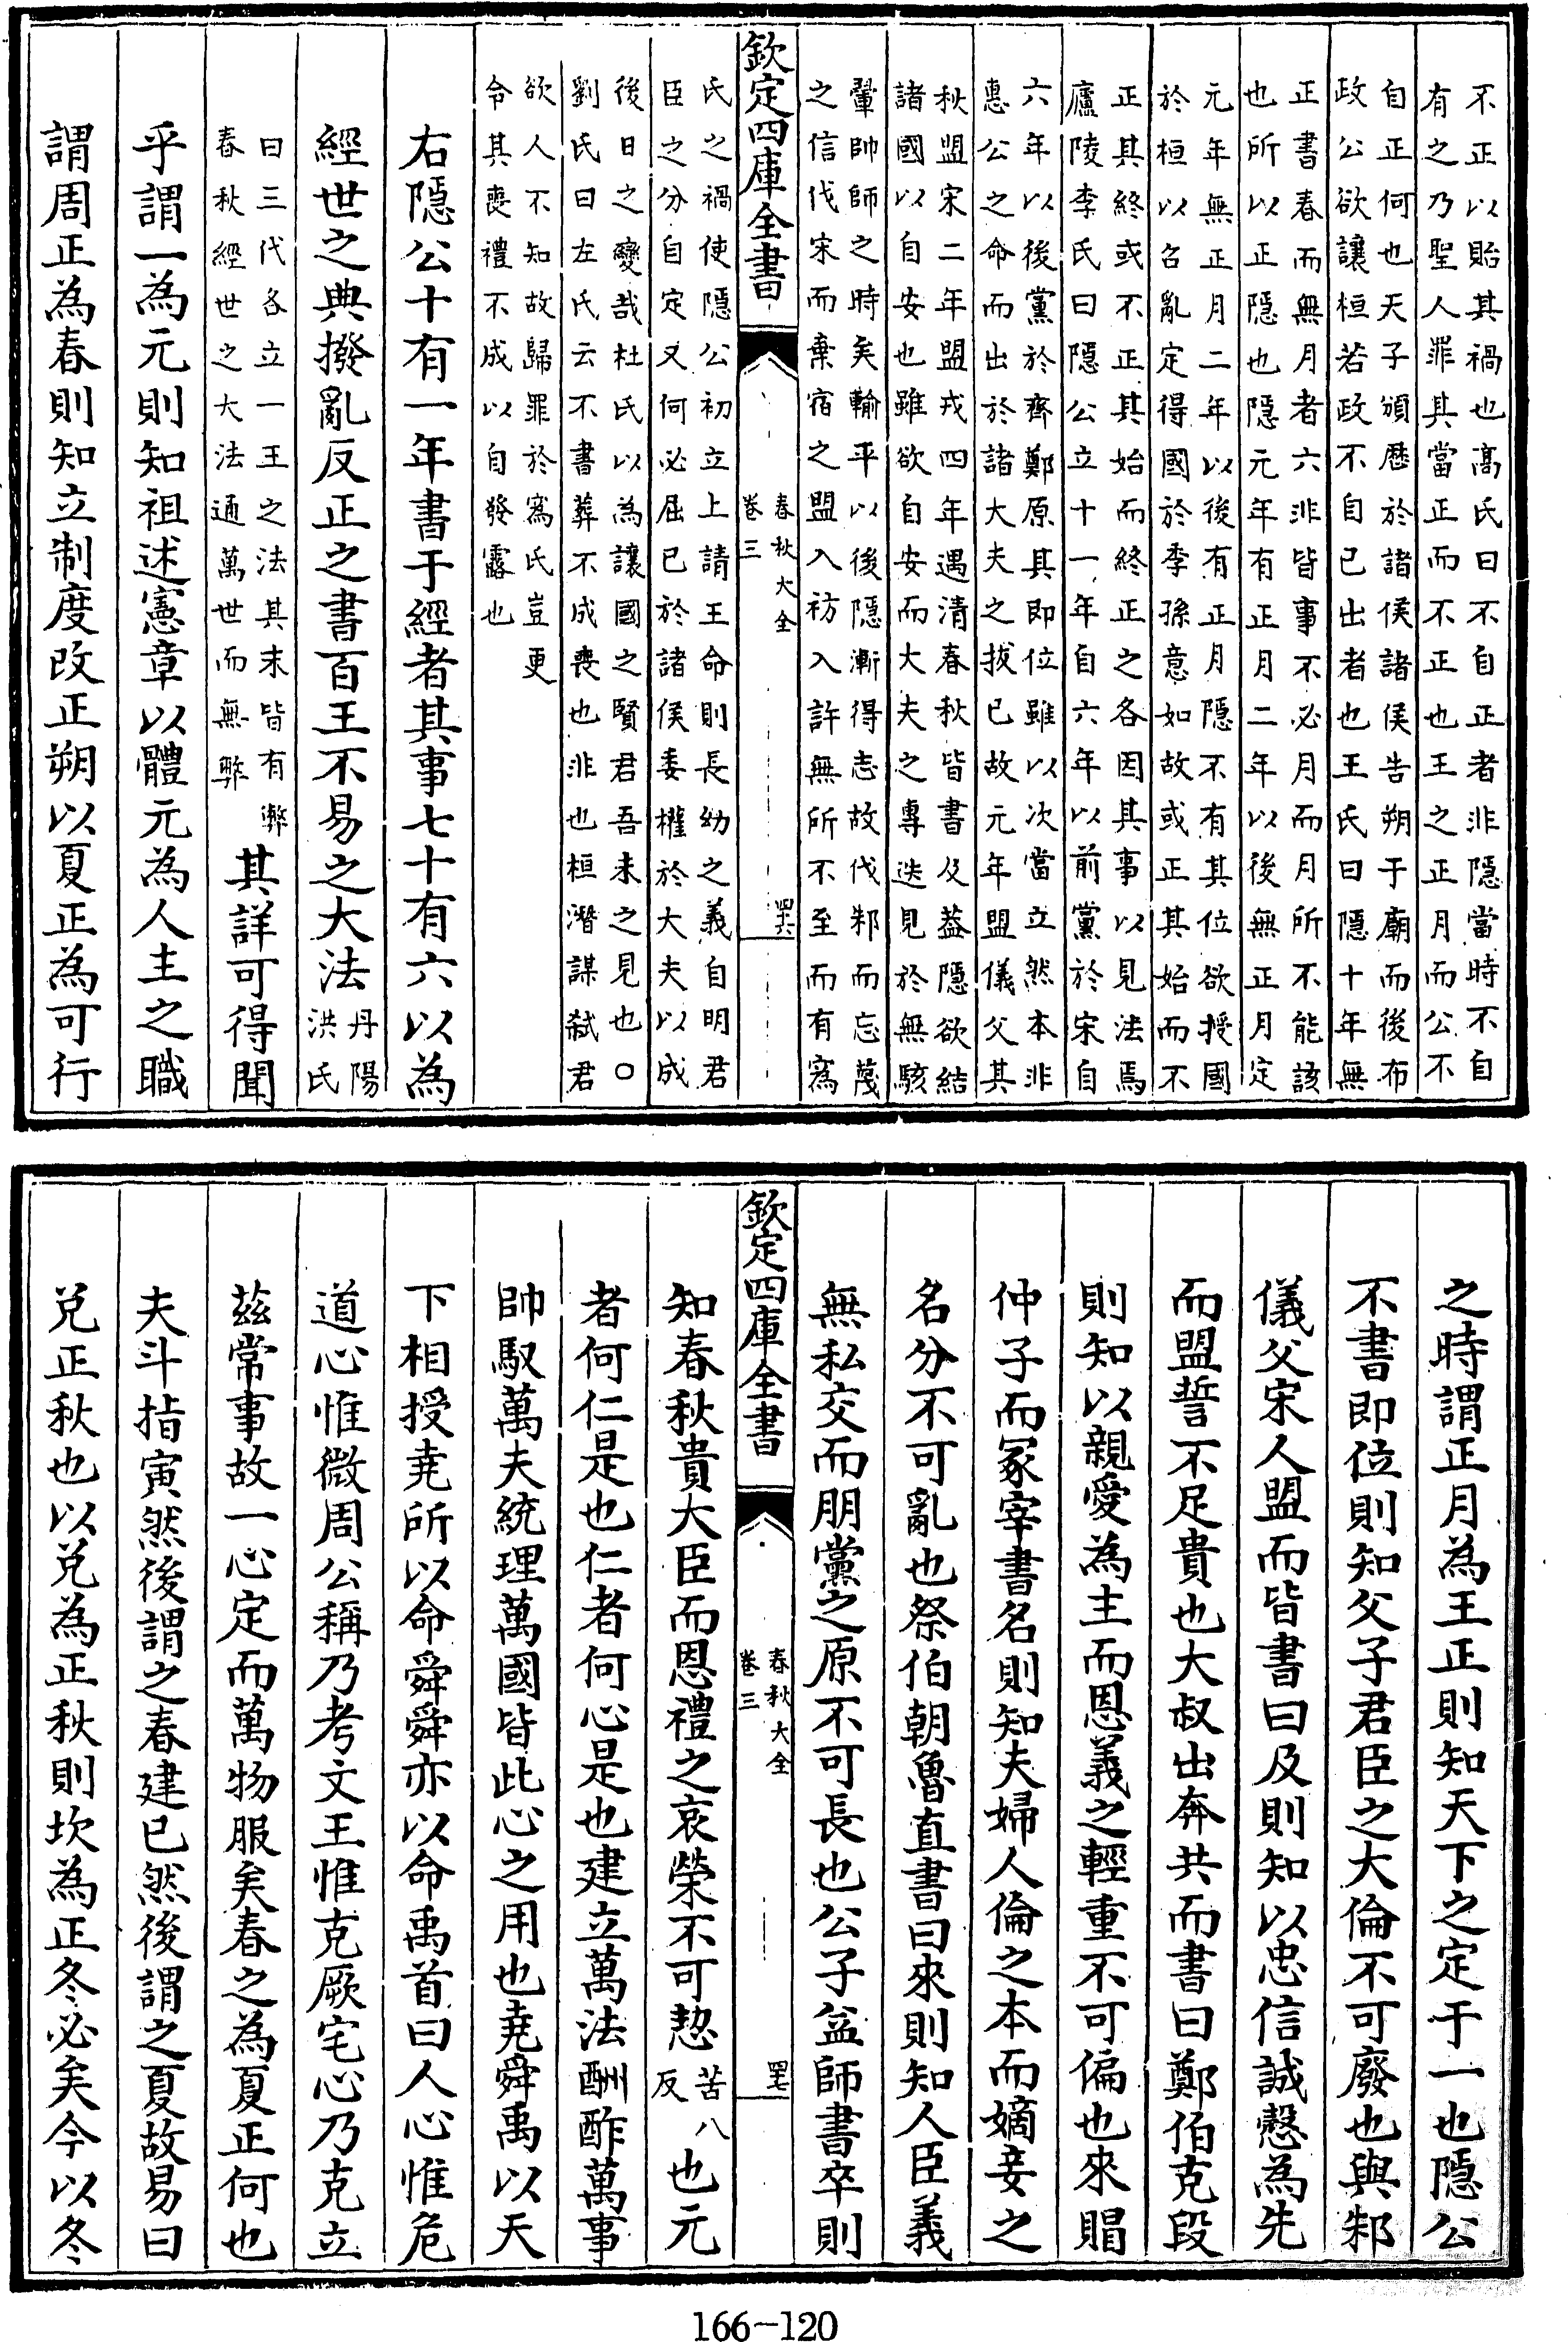 不正以貽其禍也高氏曰不自正者非隠當時不自
有之乃聖人罪其當正而不正也王之正月而公不
自正何也天子頒厯於諸侯諸侯告朔于廟而後布
政公欲讓桓若政不自已出者也王氏曰隠十年無
正書春而無月者六非皆事不必月而月所不能該
也所以正隠也隠元年有正月二年以後無正月定
元年無正月二年以後有正月隠不有其位欲授國
於桓以召亂定得國於季孫意如故或正其始而不
正其終或不正其始而終正之各因其事以見法焉
廬陵李氏曰隠公立十一年自六年以前黨於宋自
六年以後黨於齊鄭原其即位雖以次當立然本非
惠公之命而出於諸大夫之扳已故元年盟儀父其
秋盟宋二年盟戎四年遇清春秋皆書及葢隠欲結
諸國以自安也雖欲自安而大夫之專迭見於無駭
翬帥師之時矣輸平以後隠漸得志故伐邾而忘蔑
之信伐宋而棄宿之盟入祊入許無所不至而有寪
欽定四庫全書
春秋大全
卷三
四六
氏之禍使隠公初立上請王命則長幼之義自明君
臣之分自定又何必屈已於諸侯委權於大夫以成
後日之變哉杜氏以為讓國之賢君吾未之見也○
劉氏曰左氏云不書葬不成喪也非也桓潛謀弑君
欲人不知故歸罪於寪氏豈更
令其喪禮不成以自發露也
右隠公十有一年書于經者其事七十有六以為
經世之典撥亂反正之書百王不易之大法丹陽洪氏
曰三代各立一王之法其末皆有弊
春秋經世之大法通萬世而無弊
其詳可得聞
乎謂一為元則知祖述憲章以體元為人主之職
謂周正為春則知立制度改正朔以夏正為可行
之時謂正月為王正則知天下之定于一也隠公
不書即位則知父子君臣之大倫不可廢也與邾
儀父宋人盟而皆書曰及則知以忠信誠慤為先
而盟誓不足貴也大叔出奔共而書曰鄭伯克段
則知以親愛為主而恩義之輕重不可偏也來賵
仲子而冢宰書名則知夫婦人倫之本而嫡妾之
名分不可亂也祭伯朝魯直書曰來則知人臣義
無私交而朋黨之原不可長也公子益師書卒則
欽定四庫全書
春秋大全
卷三
四七
知春秋貴大臣而恩禮之哀榮不可恝苦八反也元
者何仁是也仁者何心是也建立萬法酬酢萬事
帥馭萬夫統理萬國皆此心之用也堯舜禹以天
下相授堯所以命舜舜亦以命禹首曰人心惟危
道心惟微周公稱乃考文王惟克厥宅心乃克立
茲常事故一心定而萬物服矣春之為夏正何也
夫斗指寅然後謂之春建巳然後謂之夏故易曰
兌正秋也以兌為正秋則坎為正冬必矣今以冬
166-120